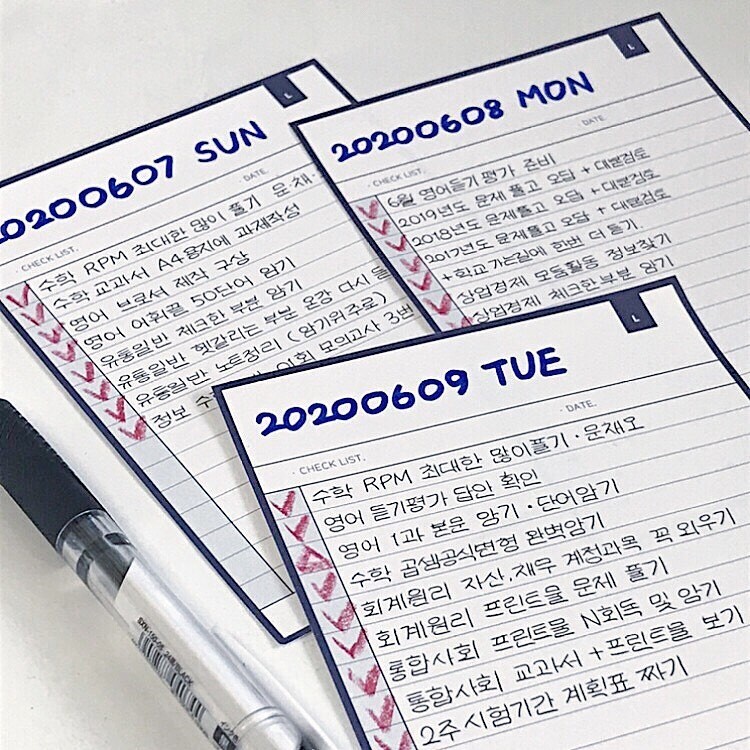 20200607 SUN
DATE.
· CHECK LIST.
수학 RPM 최대한 많이 풀기 윤·채·
수학 교과서 A4용지에 과제작성
영어 브로셔 제작 구상
영어 어휘끝 50단어 암기
유통일반 체크한 부분 암기
유통일반 헷갈리는 부분 인강 다시 듣
유통일반 노트정리 (암기위주로)
정보 이회 모의고사 3번
L
20200608 MON
· DATE.
· CHECK LIST.
6월 영어듣기평가 준비
2019년도 문제 풀고 오답 + 대본검토
2018년도 문제풀고 오답 + 대본검토
2017년도 문제풀고 오답 + 대본검토
+ 학교 가는길에 한번 더 듣기.
상업경제 모둠활동 정보찾기
상업경제 체크한 부분 암기
L
20200609 TUE
· DATE.
· CHECK LIST.
수학 RPM 최대한 많이풀기 · 문채오
영어 듣기평가 답인 확인
영어 1과 본문 암기 · 단어암기
수학 곱셈공식변형 완벽암기
회계원리 자산,재무 계정과목 꼭 외우기
회계원리 프린트물 문제 풀기
통합사회 프린트물 N회독 및 암기
통합사회 교과서 + 프린트물 보기
2주 시험기간 계획표 짜기
L